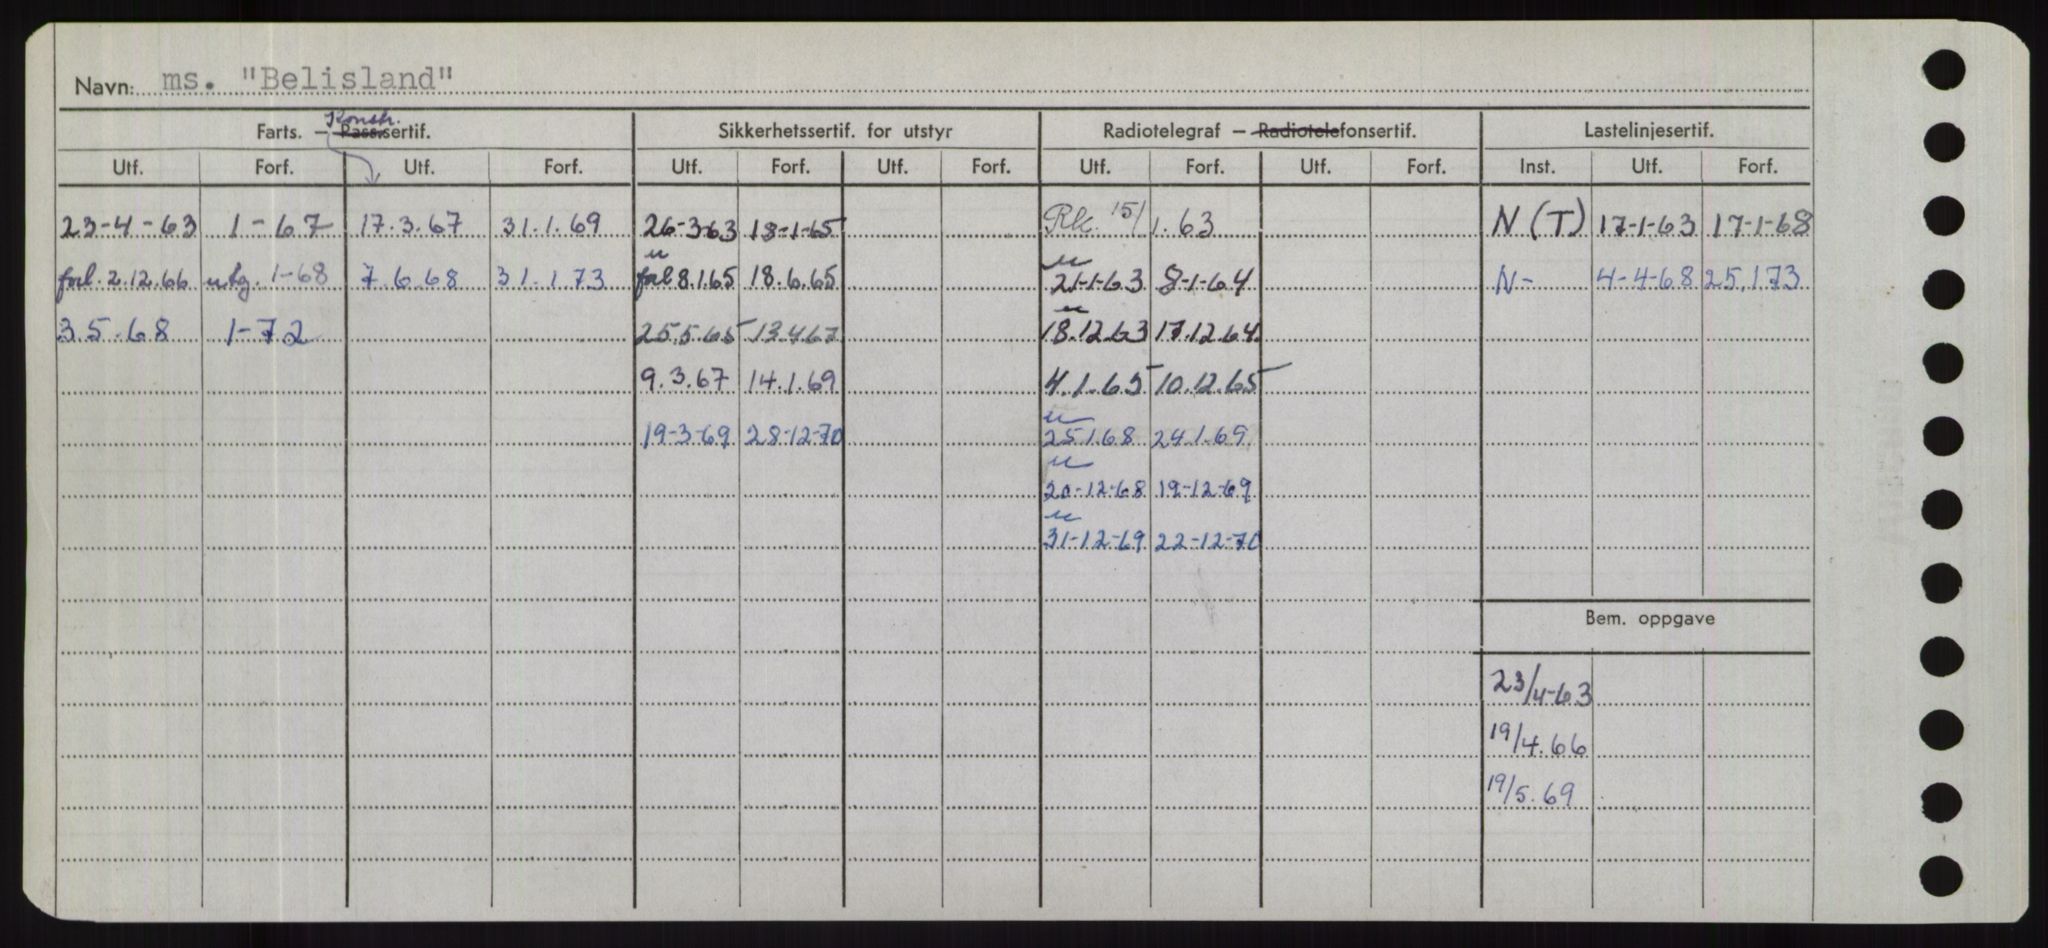 Navn: ms. "Belisland"
Konstr.
Farts. — Pass.sertif. Sikkerhetssertif. for utstyr Radiotelegraf — Radiotelefonsertif. Lastelinjesertif.
Utf. Forf. Utf. Forf. Utf. Forf. Utf. Forf. Utf. Forf. Utf. Forf. Inst. Utf. Forf.
23-4-63 1-67 17.3.67 31.1.69 26-3-63 18-1-65 Rk. 15/1.63 N(T) 17-1-63 17-1-68
u u
forl. 2.12.66 utg. 1-68 7.6.68 31.1.73 forl 8.1.65 18.6.65 21-1-63 8-1-64 N- 4-4-68 25.1.73
u
3.5.68 1-72 25.5.65 13.4.67 18.12.63 17.12.64
9.3.67 14.1.69 4.1.65 10.12.65
u
19-3-69 28-12-70 25.1.68 24.1.69
u
20-12-68 19-12-69
u
31-12-69 22-12-70
Bem. oppgave
23/4-63
19/4.66
19/5.69